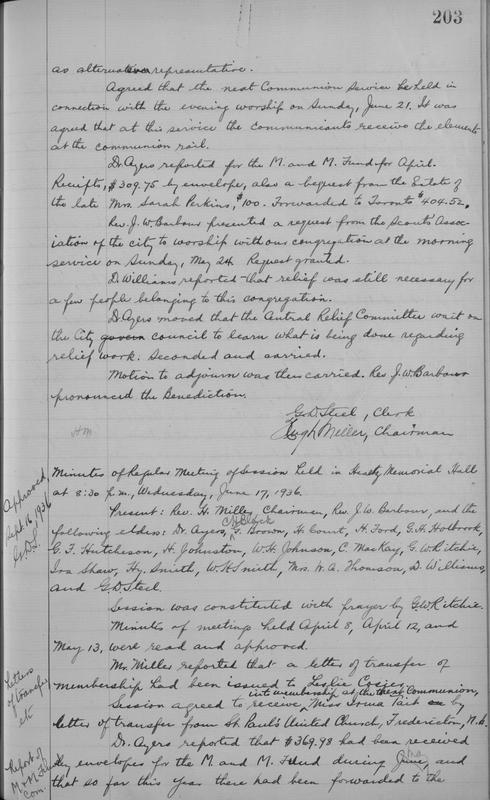 203
as alternative representative.
Agreed that the next Communion Service be held in
connection with the evening worship on Sunday, June 21. It was
agreed that at this service the communicants receive the elements
at the communion rail.
Dr. Ayers reported for the M. and M. Fund for April.
Receipts, $309.75 by envelopes, also a bequest from the Estate of
the late Mrs. Sarah Perkins, $100. Forwarded to Toronto $404.52.
Rev. J. W. Barbour presented a request from the Scouts Assoc-
iation of the city to worship with our congregation at the morning
service on Sunday, May 24. Request granted.
D. Williams reported that relief was still necessary for
a few people belonging to this congregation.
Dr. Ayers moved that the Central Relief Committee wait on
the City govern council to learn what is being done regarding
relief work. Seconded and carried.
Motion to adjourn was then carried. Rev. J. W. Barbour
pronounced the Benediction.
G. D. Steel, Clerk
Hugh Miller, Chairman
HM
Approved,
Sept. 16, 1936
G.D.S.
Minutes of Regular Meeting of Session held in Heartz Memorial Hall
at 8:30 p.m., Wednesday, June 17, 1936.
Present: Rev. H. Miller, Chairman, Rev. J. W. Barbour, and the
following elders: Dr. Ayers, F. Brown, H. Court, H. Ford, G. H. Holbrook,
G. F. Hutcheson, H. Johnston, W. H. Johnson, C. MacKay, G. W. Ritchie,
Ira Shaw, Hy. Smith, W. H. Smith, Mrs. W. A. Thomson, D. Williams,
and G. D. Steel.
Session was constituted with prayer by G. W. Ritchie.
Minutes of meetings held April 8, April 12, and
May 13, were read and approved.
Letters
of transfer
etc
Mr. Miller reported that a letter of transfer of
membership had been issued to Leslie
Session agreed to receive into membership at the next Communion, Miss Irma Tait by
letter of transfer from St. Paul's United Church, Fredericton, N.B.
Report of
M & M Fund
Com.
Dr. Ayers reported that $369.98 had been received
by envelopes for the M. and M. Fund during June, May and
that so far this year there had been forwarded to the